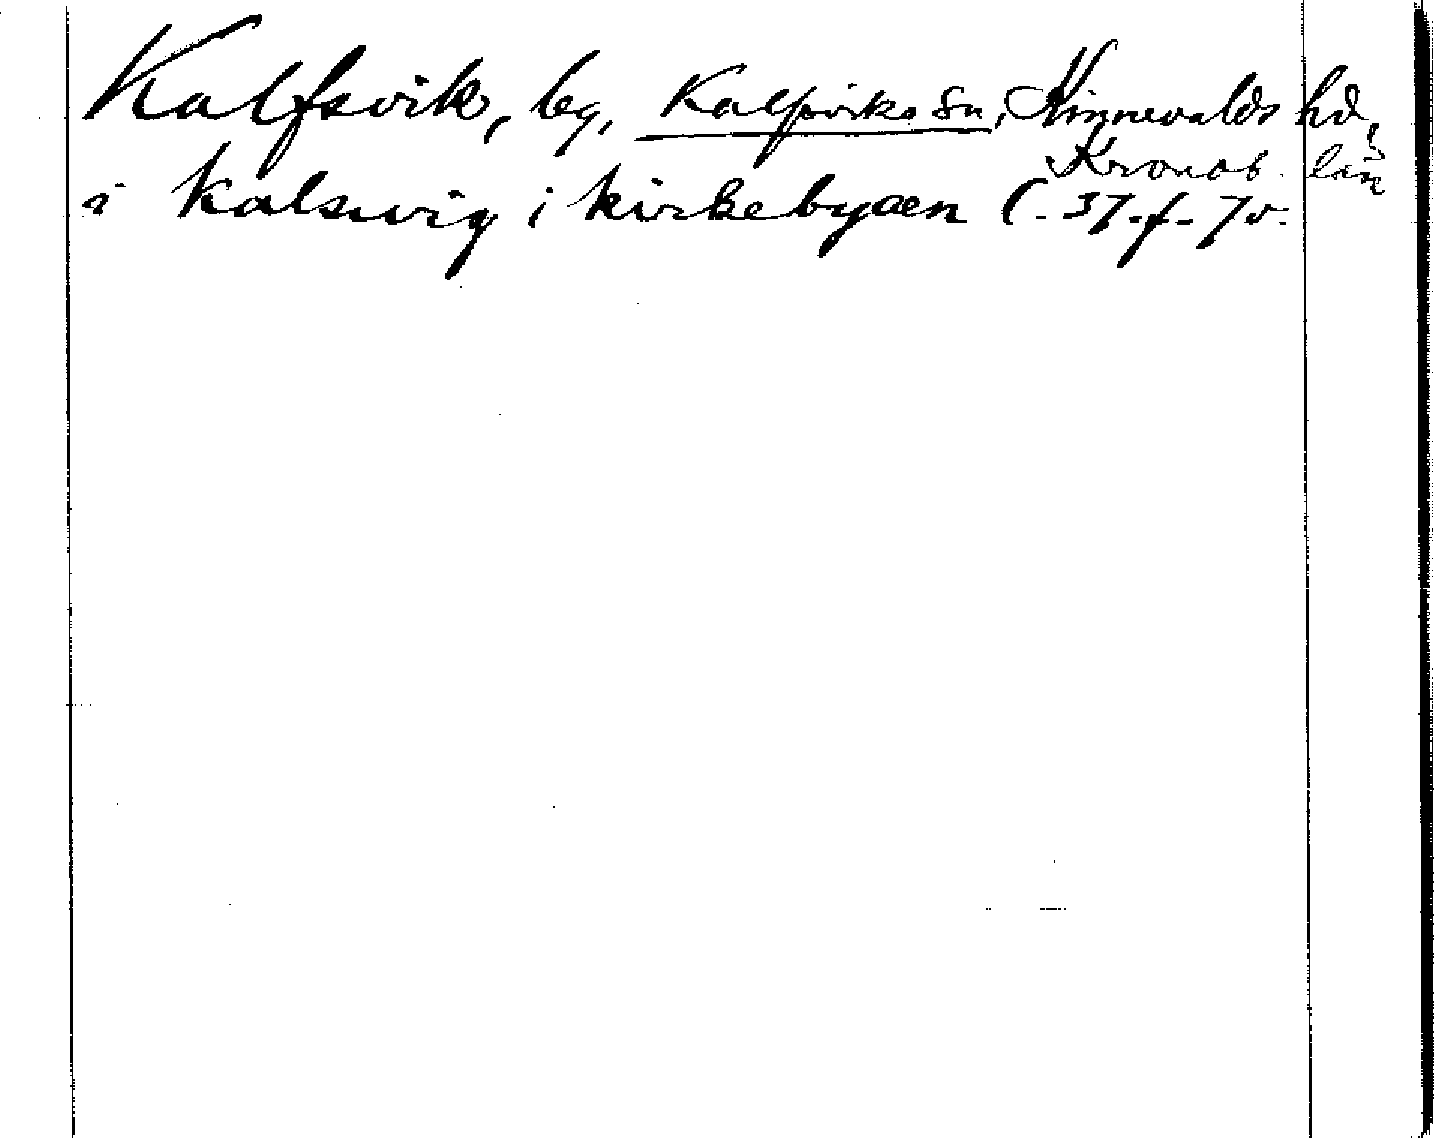 Kalfsvik, by, Kalfsviks sn, Kinnevalds hd,
Kronob. län
i kalsuvig i kirkebyæn (- 37-f-7v.